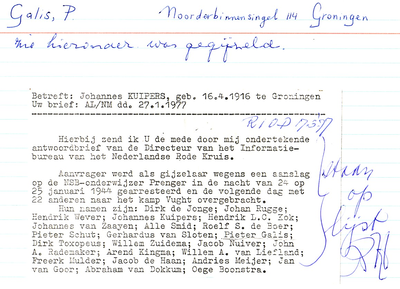 Galis, P. Noorderbinnensingel 114 Groningen
zie hieronder was gegijzeld.
Betreft: Johannes KUIPERS, geb. 16.4.1916 te Groningen
Uw brief: AL/NM dd. 27.1.1977
RIOD
Hierbij zend ik U de mede door mij ondertekende
antwoordbrief van de Directeur van het Informatie-
bureau van het Nederlandse Rode Kruis.
Aanvrager werd als gijzelaar wegens een aanslag
op de NSB-onderwijzer Prenger in de nacht van 24 op
25 januari 1944 gearresteerd en de volgende dag met
22 anderen naar het kamp Vught overgebracht.
Hun namen zijn: Dirk de Jonge; Johan Rugge;
Hendrik Wever; Johannes Kuipers; Hendrik L.C. Kok;
Johannes van Zaayen; Alle Smid; Roelf S. de Boer;
Pieter Schut; Gerhardus van Sloten; Pieter Galis;
Dirk Toxopeus; Willem Zuidema; Jacob Nuiver; John
A. Rademaker; Arend Kingma; Willem A. van Liefland;
Freerk Mulder; Jacob de Haan; Andries Meijer; Jan
van Goor; Abraham van Dokkum; Oege Boonstra.
staan
op
lijst